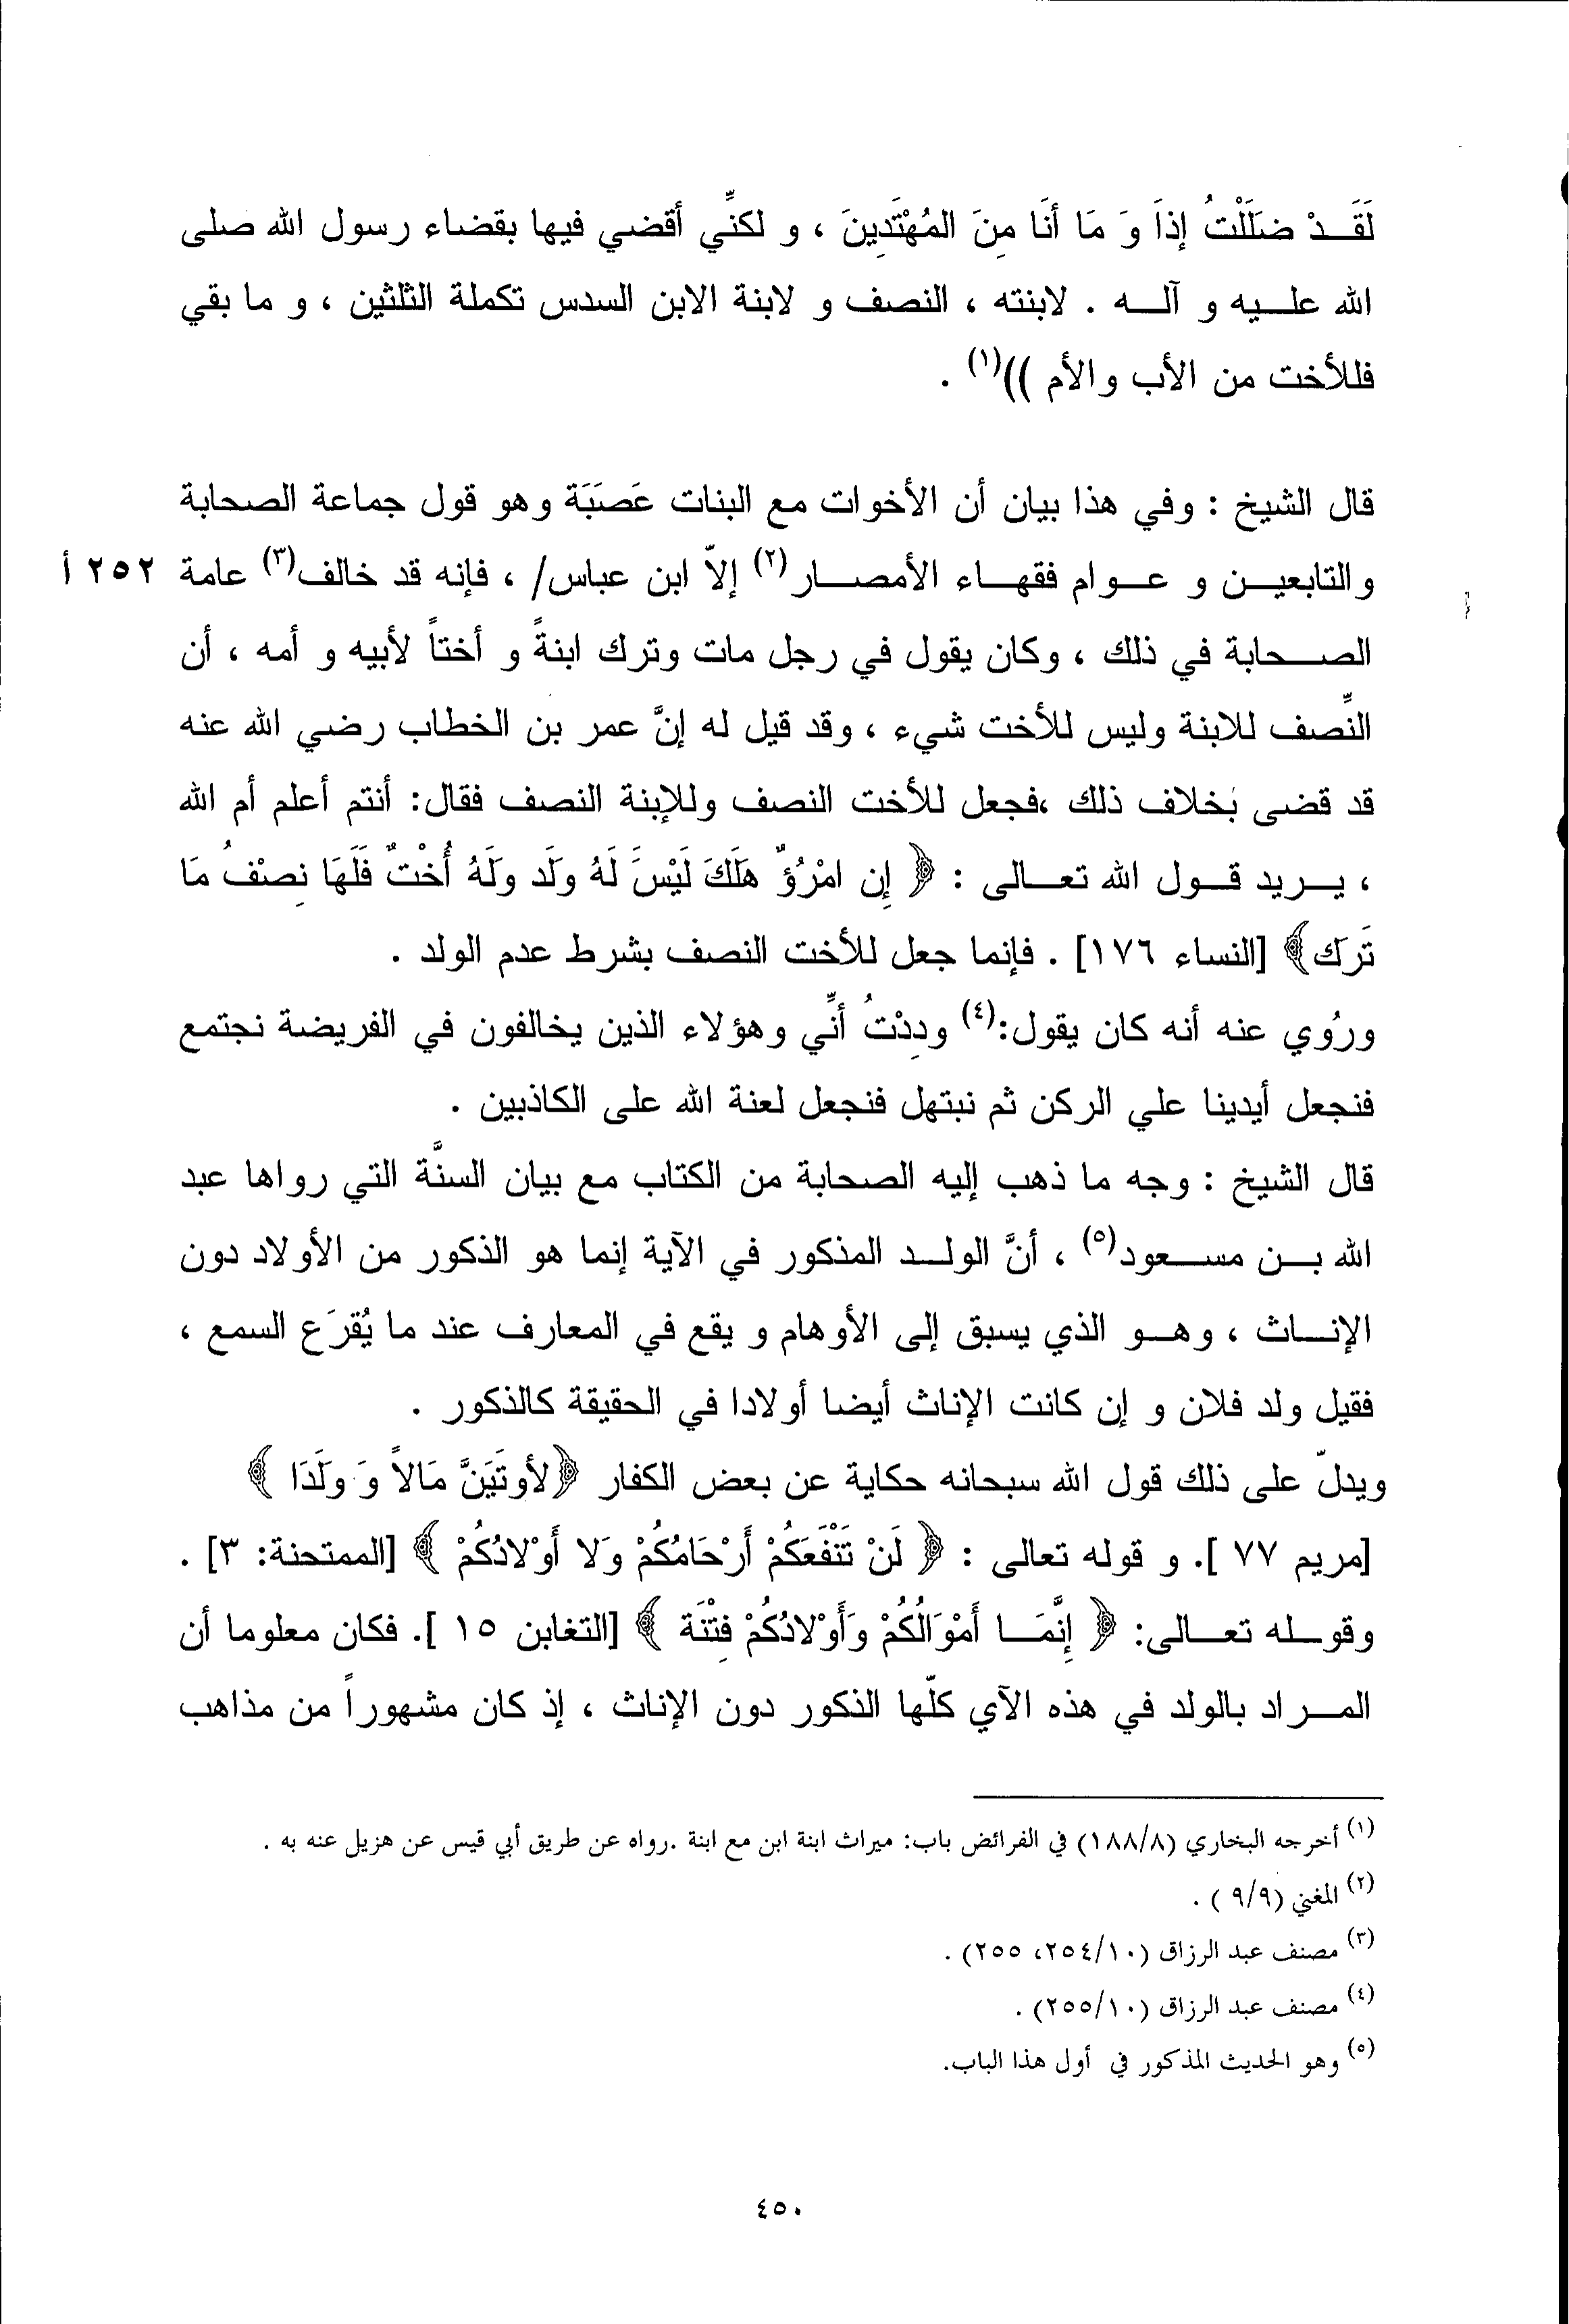 لَقَـدْ ضَلَلْتُ إذَا وَ مَا أنَا مِنَ المُهْتَدِينَ ، و لكنِّي أقضي فيها بقضاء رسول الله صلى
الله عليه و آله . لابنته ، النصف و لابنة الابن السدس تكملة الثلثين ، و ما بقي
فللأخت من الأب والأم ))(١) .
قال الشيخ : وفي هذا بيان أن الأخوات مع البنات عَصَبَة وهو قول جماعة الصحابة
والتابعين و عوام فقهاء الأمصار(٢) إلاّ ابن عباس/ ، فإنه قد خالف(٣) عامة ٢٥٢ أ
الصحابة في ذلك ، وكان يقول في رجل مات وترك ابنةً و أختاً لأبيه و أمه ، أن
النِّصف للابنة وليس للأخت شيء ، وقد قيل له إنَّ عمر بن الخطاب رضي الله عنه
قد قضى بخلاف ذلك ،فجعل للأخت النصف وللإبنة النصف فقال: أنتم أعلم أم الله
، يريد قول الله تعالى : ﴿ إِن امْرُؤٌ هَلَكَ لَيْسَ لَهُ ولَد ولَهُ أُخْتٌ فَلَهَا نِصْفُ مَا
تَرَك﴾ [النساء ١٧٦] . فإنما جعل للأخت النصف بشرط عدم الولد .
ورُوي عنه أنه كان يقول:(٤) ودِدْتُ أنِّي وهؤلاء الذين يخالفون في الفريضة نجتمع
فنجعل أيدينا علي الركن ثم نبتهل فنجعل لعنة الله على الكاذبين .
قال الشيخ : وجه ما ذهب إليه الصحابة من الكتاب مع بيان السنَّة التي رواها عبد
الله بن مسعود(٥) ، أنَّ الولد المذكور في الآية إنما هو الذكور من الأولاد دون
الإناث ، وهو الذي يسبق إلى الأوهام و يقع في المعارف عند ما يُقرَع السمع ،
فقيل ولد فلان و إن كانت الإناث أيضا أولادا في الحقيقة كالذكور .
ويدلّ على ذلك قول الله سبحانه حكاية عن بعض الكفار ﴿لأوتَيَنَّ مَالاً وَ ولَدَا ﴾
[مريم ٧٧ ]. و قوله تعالى : ﴿ لَنْ تَنْفَعَكُمْ أَرْحَامُكُمْ وَلا أَوْلادُكُمْ ﴾ [الممتحنة: ٣] .
وقوله تعالى: ﴿ إِنَّمَا أَمْوَالُكُمْ وَأَوْلادُكُمْ فِتْنَة ﴾ [التغابن ١٥ ]. فكان معلوما أن
المراد بالولد في هذه الآي كلّها الذكور دون الإناث ، إذ كان مشهوراً من مذاهب
(١) أخرجه البخاري (١٨٨/٨) في الفرائض باب: ميراث ابنة ابن مع ابنة .رواه عن طريق أبي قيس عن هزيل عنه به .
(٢) المغني (٩/٩ ) .
(٣) مصنف عبد الرزاق (٢٥٤/١٠، ٢٥٥) .
(٤) مصنف عبد الرزاق (٢٥٥/١٠) .
(٥) وهو الحديث المذكور في أول هذا الباب.
٤٥٠